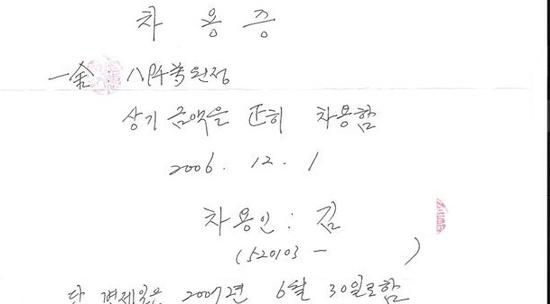 차 용 증
一金 八阡萬원정
상기 금액을 正히 차용함
2006. 12. 1
차용인 : 김
(520103 - )
단 변제일은 2007년 6월 30일로함